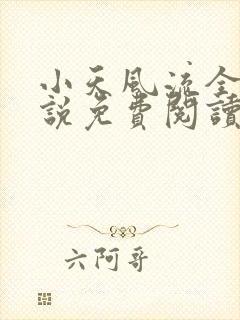 小天風流全
說免費閱讀
六阿哥